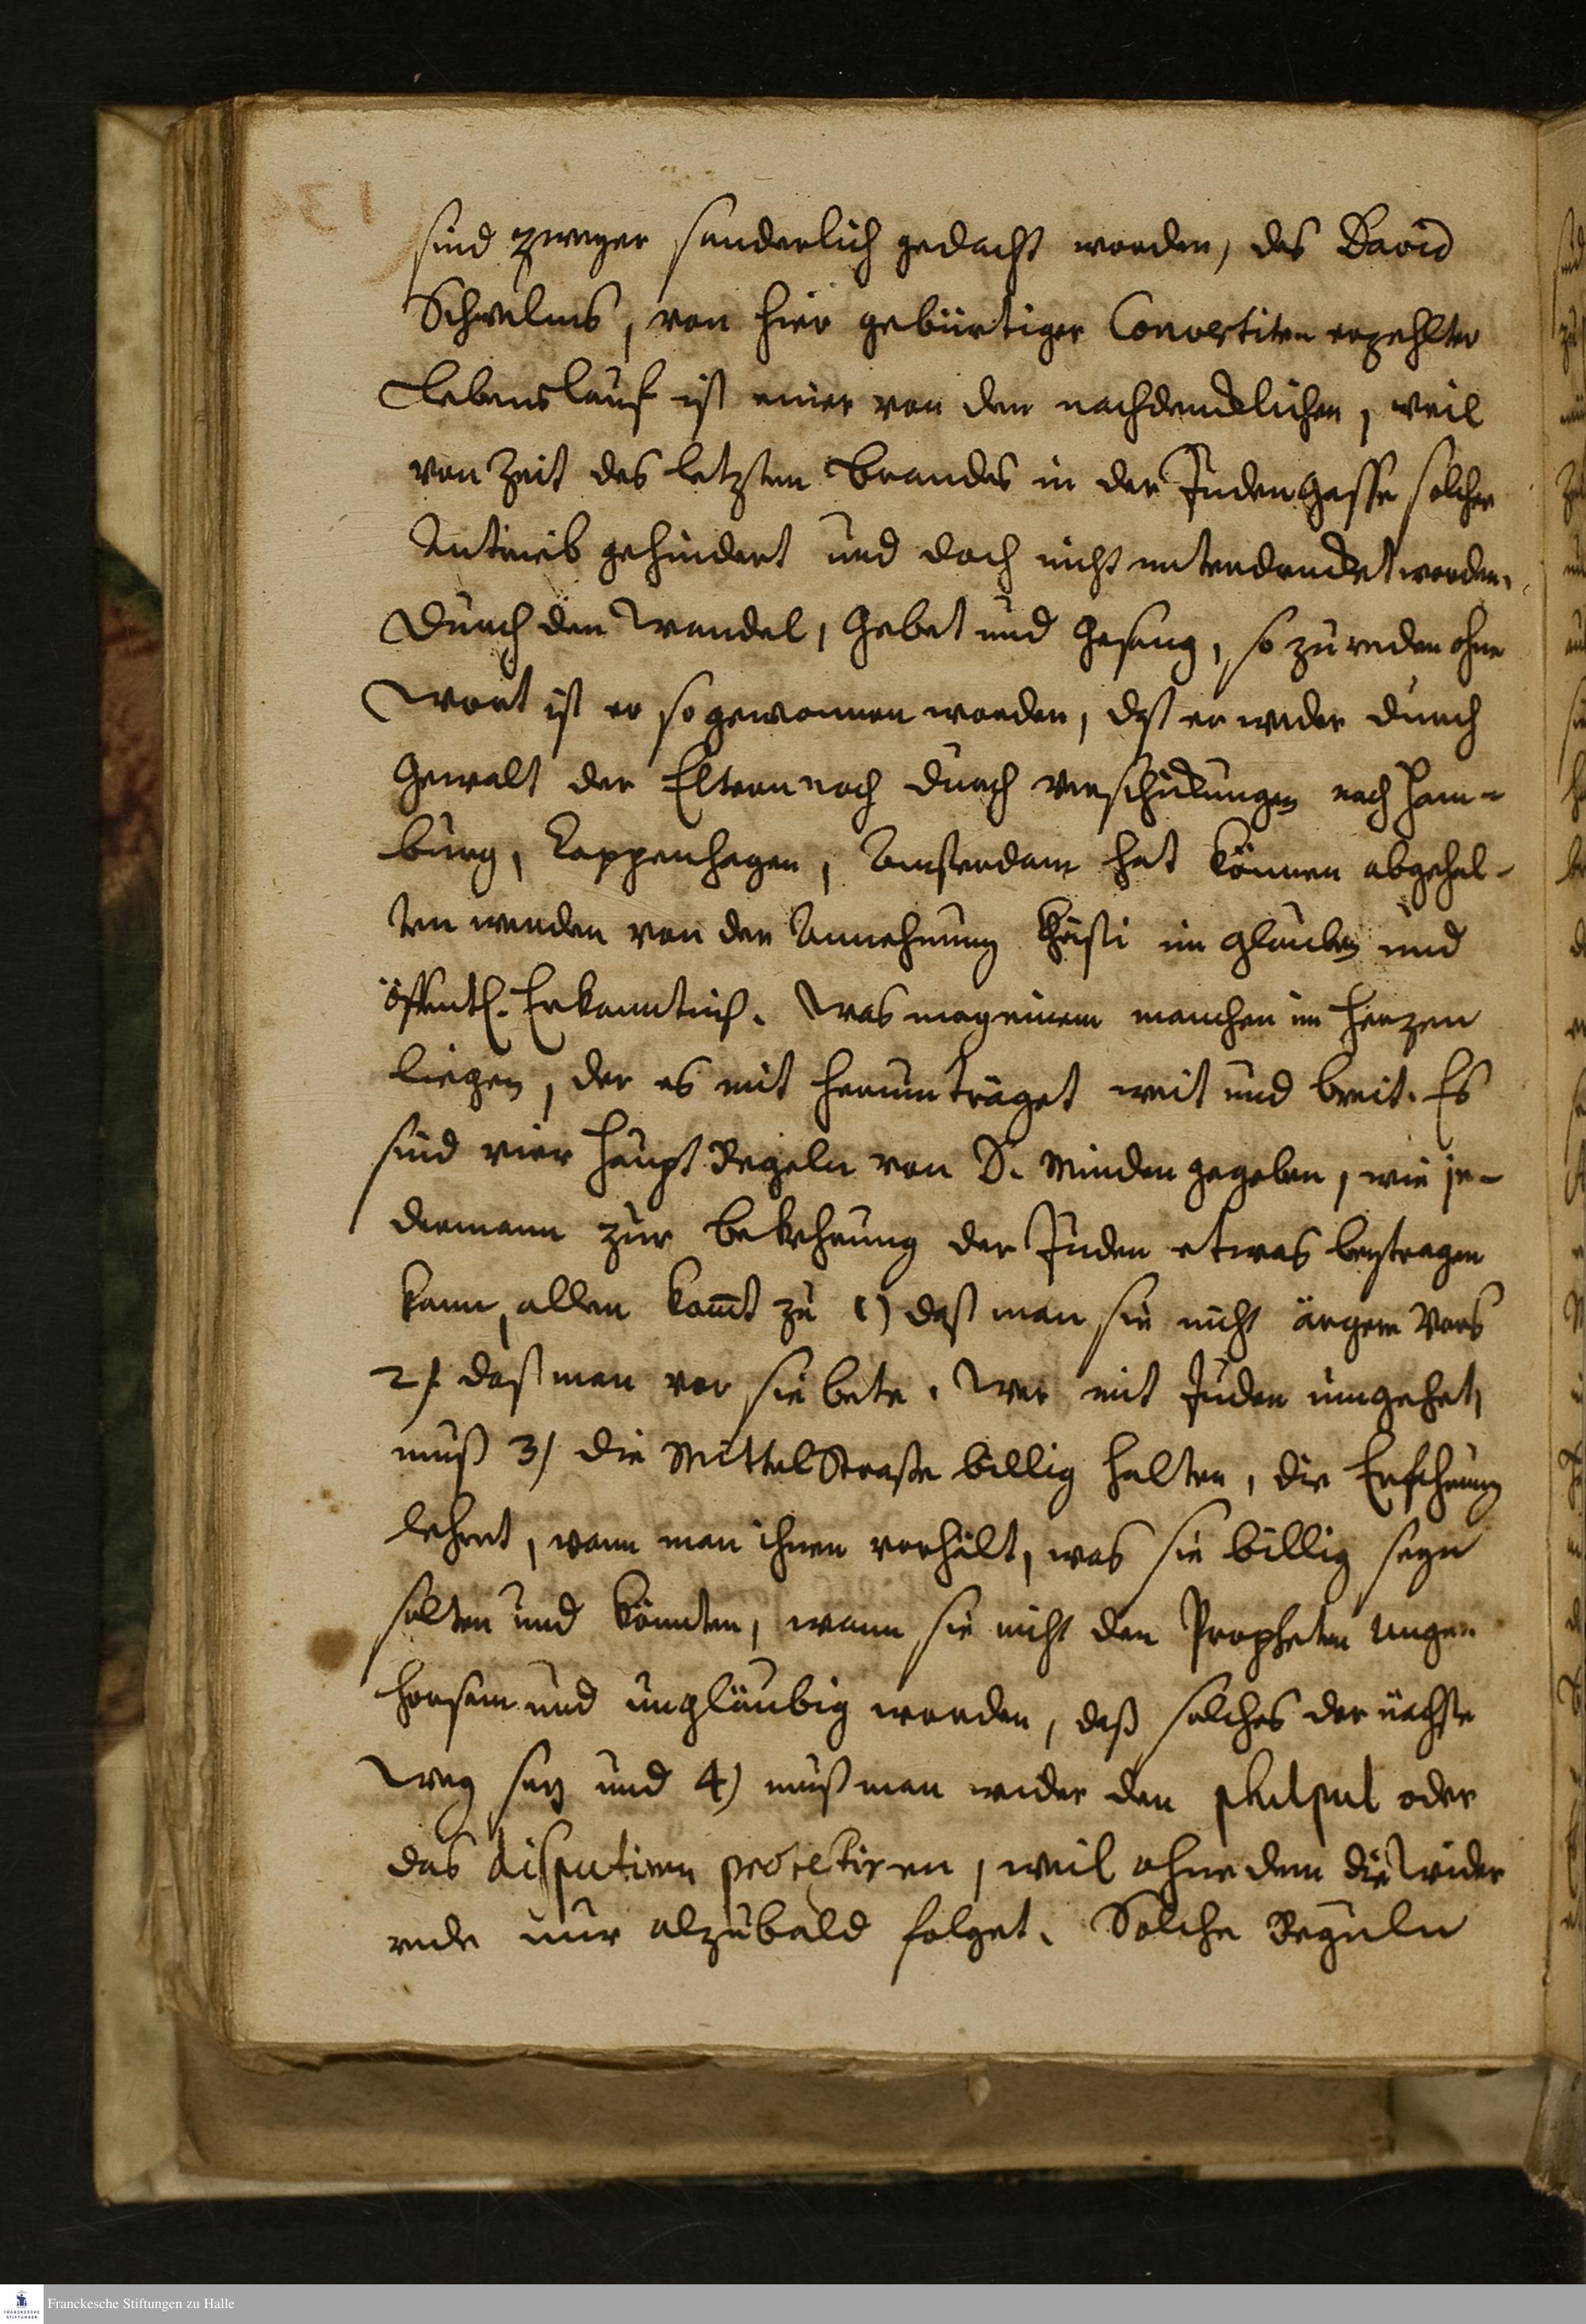 sind zweyer sonderlich gedacht worden, des David
Schwelms, von hier gebürtiger Convertiten erzehlter
Lebenslauf ist einer von den nachdencklichen, weil
von Zeit des letzten Brandes in der Judengasse solcher
Antrieb gehindert und doch nicht unterdrucket worden.
Durch den Wandel, Gebet und Gesang, so zu reden ohne
Wort ist er so gewonnen worden, dz er weder durch
Gewalt der Eltern noch durch verschickungen nach Ham-
burg, Coppenhagen, Amsterdam hat können abgehal-
ten werden von der Annehmung Christi im glauben und
öffentl. Erkanntniß. Was mag einem manchen im Herzen
liegen, der es mit herum träget weit und breit. Es
sind vier Haupt Regeln von D. Minden gegeben, wie je-
dermann zur bekehrung der Juden etwas beytragen
kann, allen komt zu 1) daß man sie nicht ärgere
2) daß man vor sie bete. Wer mit Juden umgehet,
muß 3) die MittelStrasse billig halten, die Erfahrung
lehret, wann man ihnen vorhält, was sie billig seyn
solten und könnten, wann sie nicht den Propheten unge-
horsam und ungläubig worden, daß solches der nächste
Weg sey und 4) muß man wider den philpul oder
das disputiren protestiren, weil ohne dem die Wider
rede nur alzubald folget. Solche Reguln
Franckesche Stiftungen zu Halle